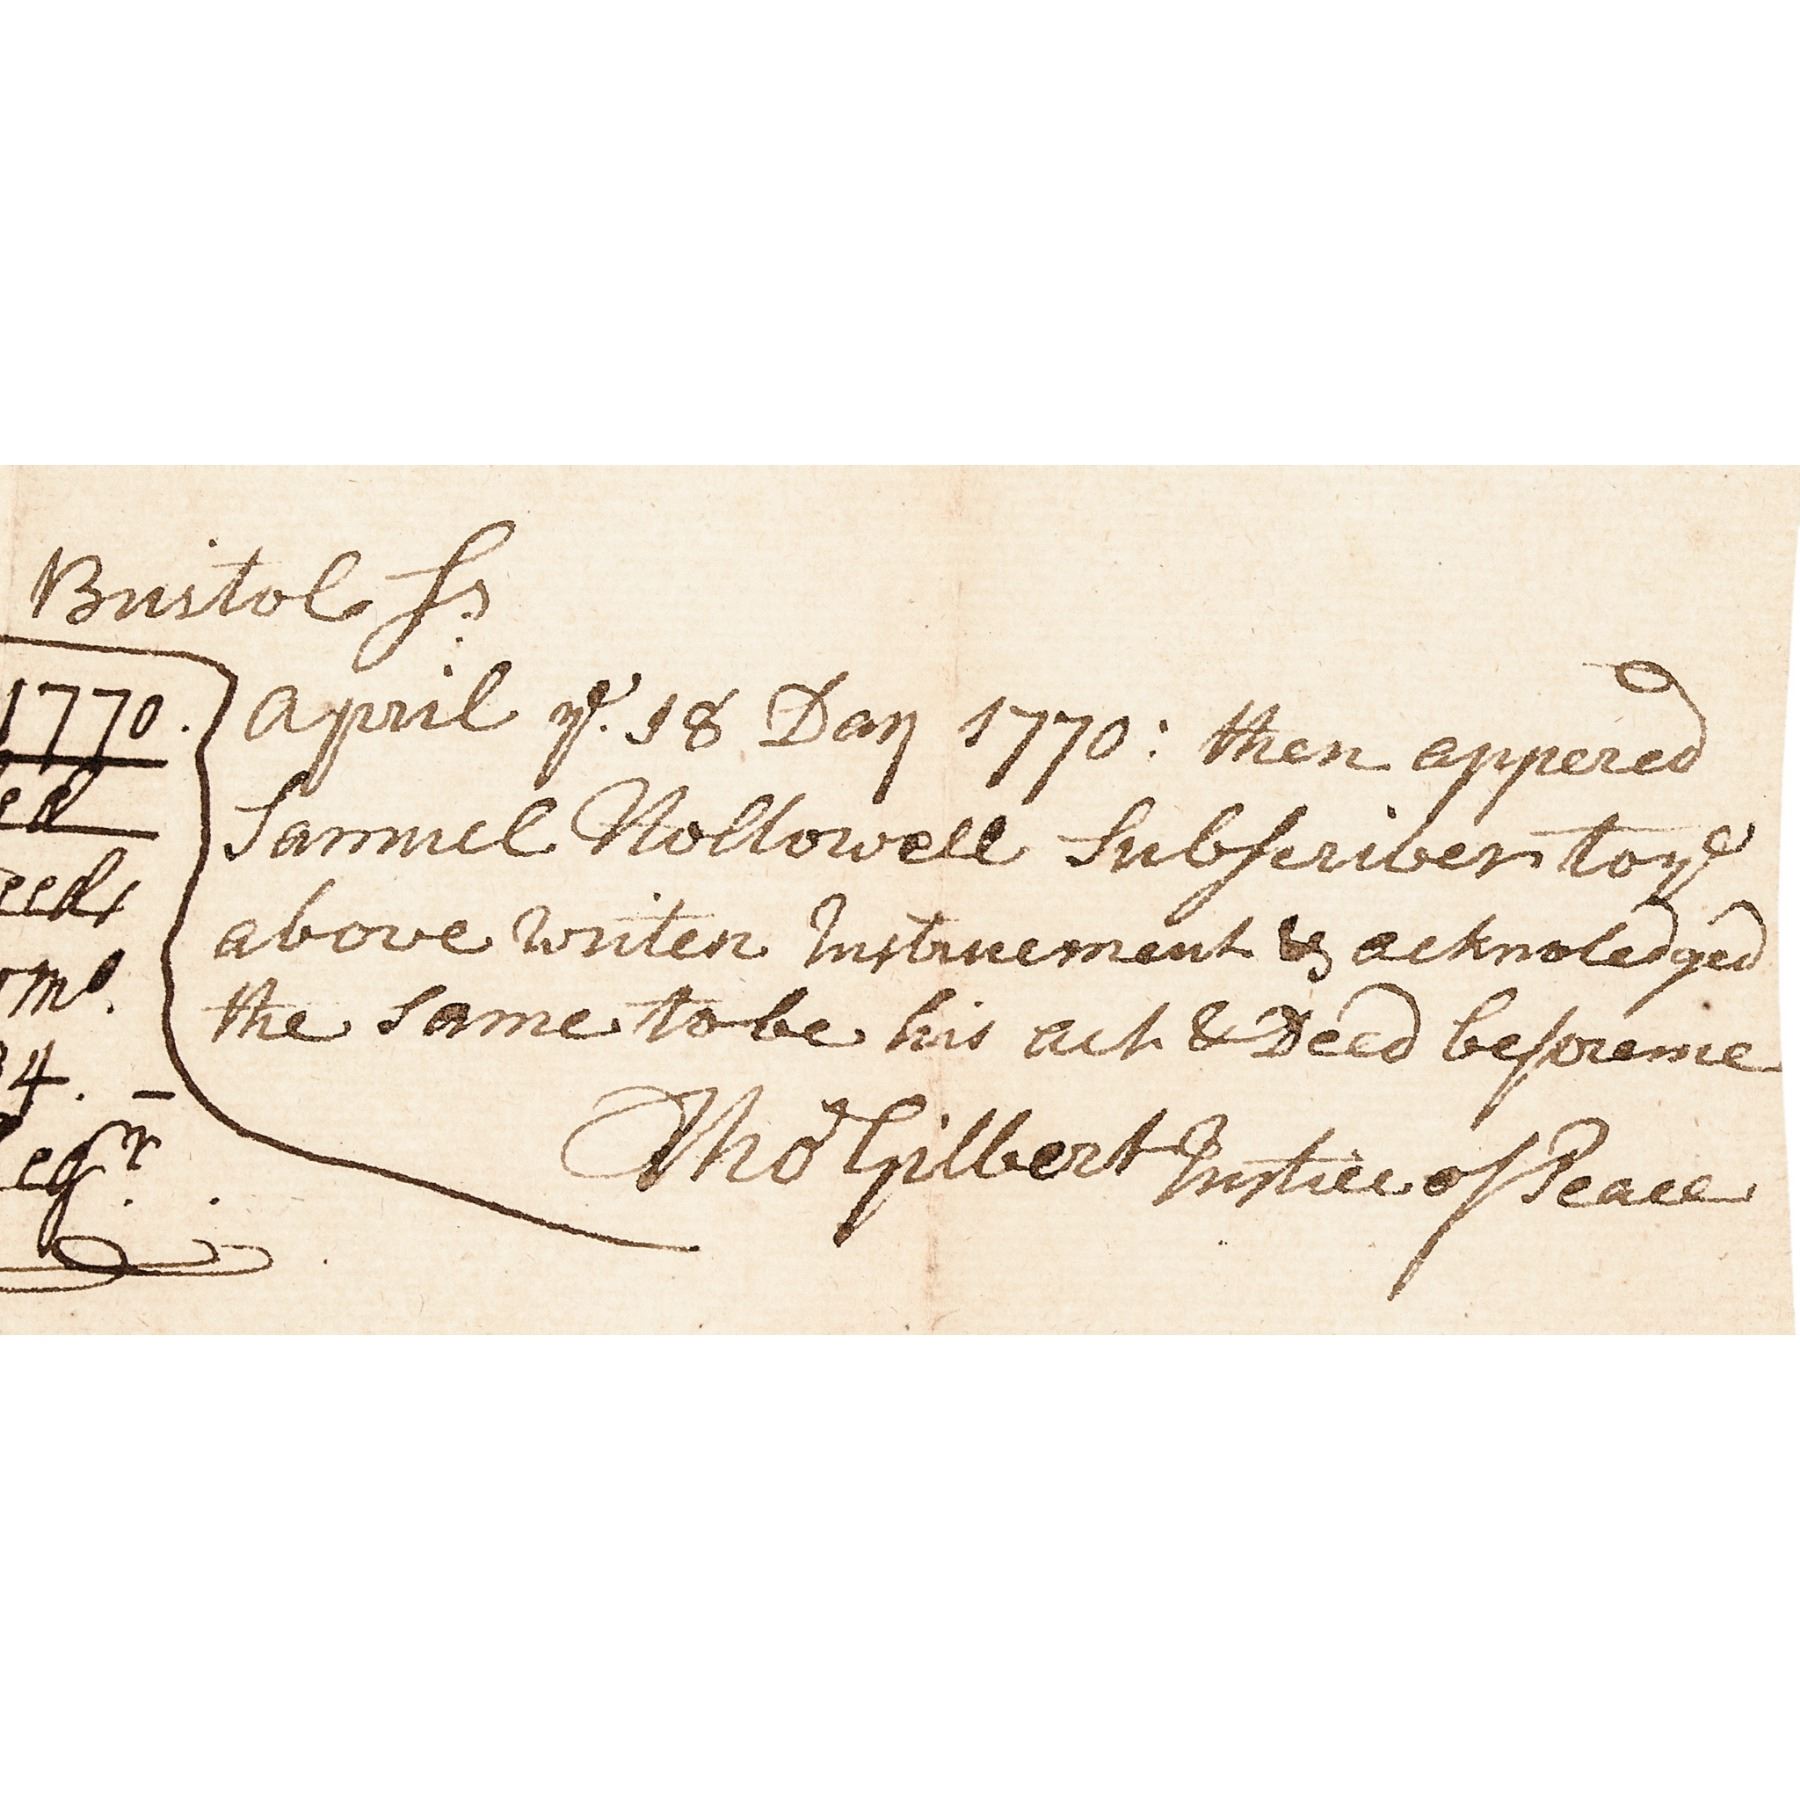 Bristol Ss
1770. April ye. 18 Day 1770: then appered
Samuel Hollowell Subscriber to ye
above writen Instruement & acknoledged
the Same to be his act & Deed before me
Thos Gilbert Justice of Peace